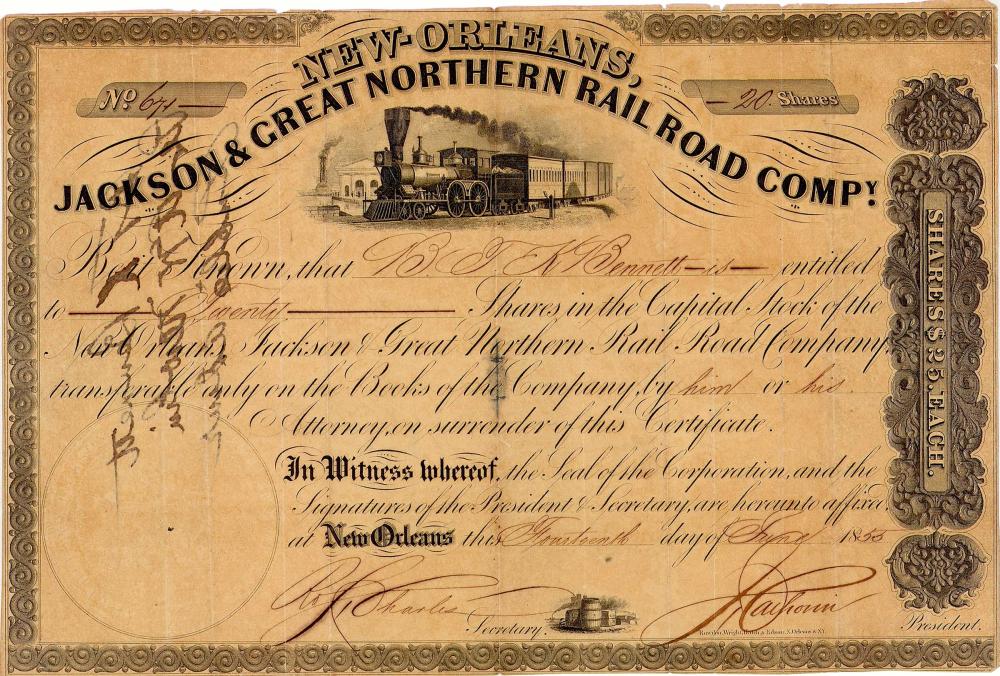 NEW-ORLEANS,
JACKSON & GREAT NORTHERN RAIL ROAD COMPY.
No 671
20 Shares
Be it Known, that B T K Bennett is entitled
to Twenty Shares, in the Capital Stock of the
New Orleans, Jackson & Great Northern Rail Road Company
transferable only on the Books of the Company, by him or his
Attorney, on surrender of this Certificate.
In Witness whereof, the Seal of the Corporation, and the
Signatures of the President & Secretary, are hereunto affixed
at New Orleans this Fourteenth day of 1855
SHARES $25. EACH.
Charles
Secretary.
Calhoun
President.
Rawdon, Wright, Hatch & Edson, N. Orleans & N.Y.